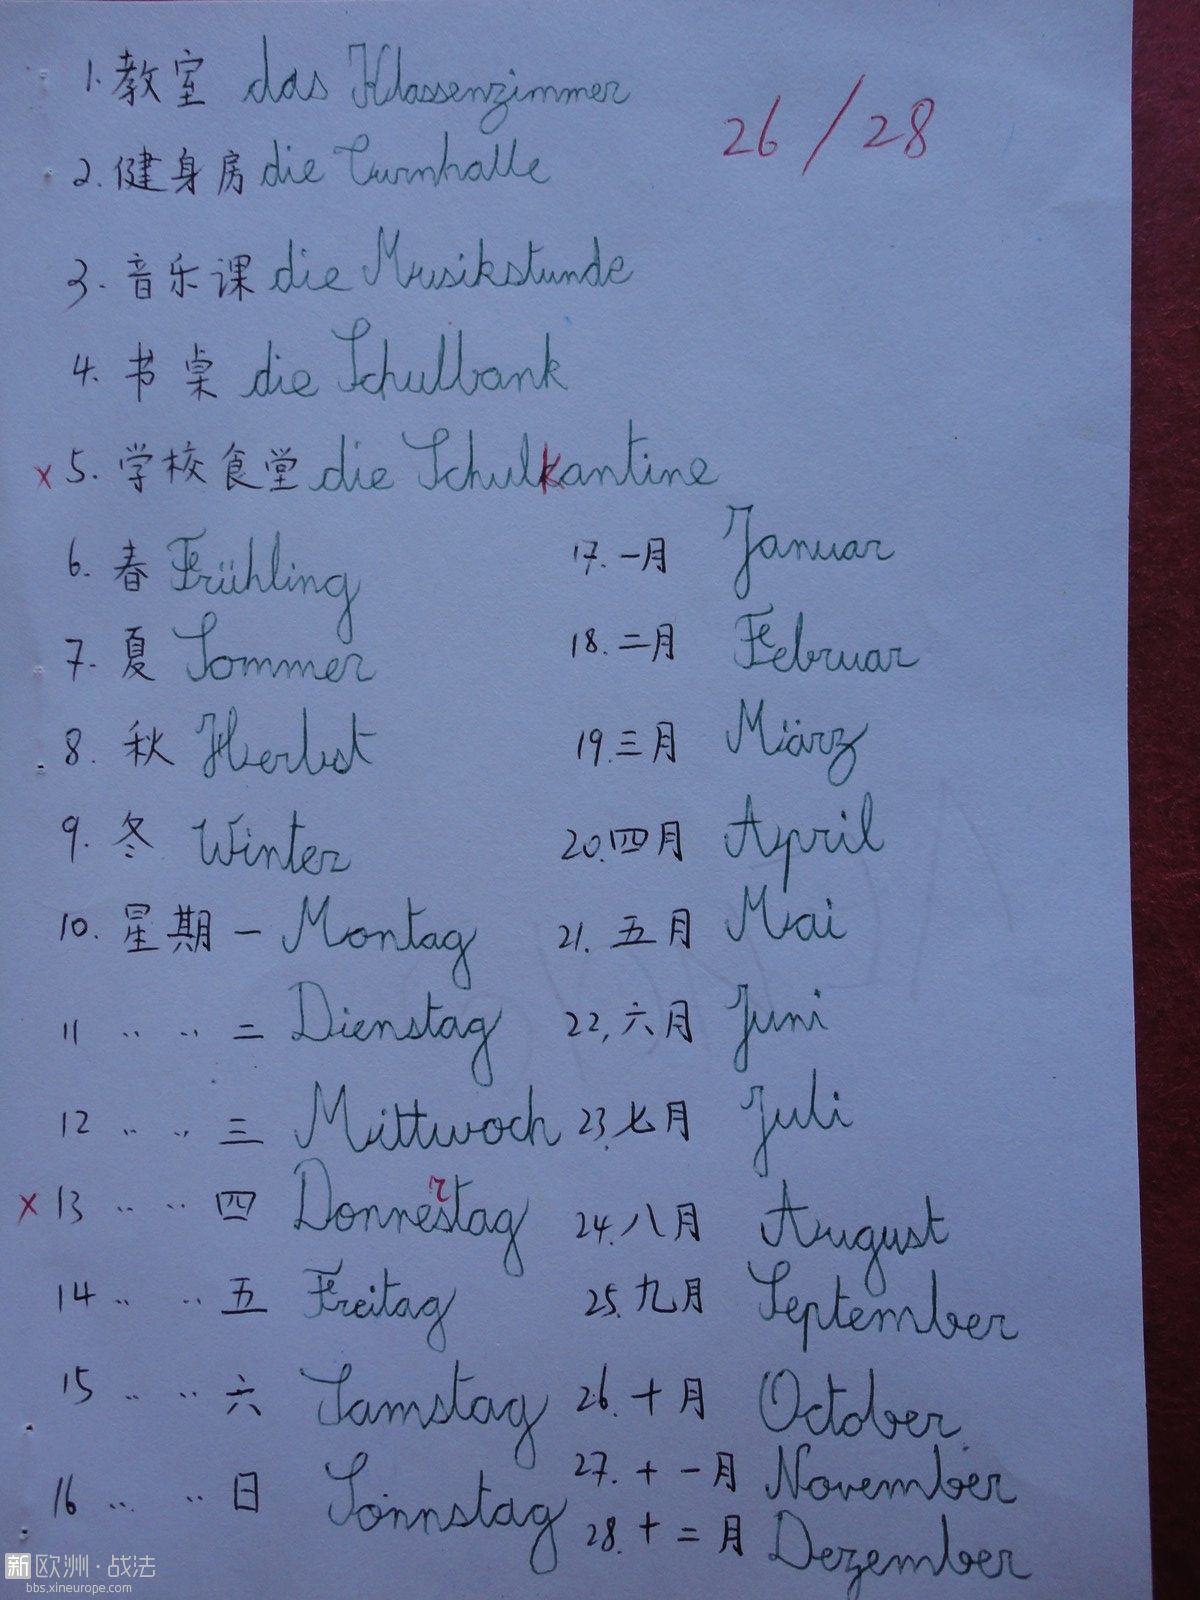 1. 教室 das Klassenzimmer
26/28
2. 健身房 die Turnhalle
3. 音乐课 die Musikstunde
4. 书桌 die Schulbank
x 5. 学校食堂 die Schulkantine
6. 春 Frühling
7. 夏 Sommer
8. 秋 Herbst
9. 冬 Winter
10. 星期一 Montag
11 〃 〃 二 Dienstag
12 〃 〃 三 Mittwoch
x 13 〃 〃 四 Donnerstag
14 〃 〃 五 Freitag
15 〃 〃 六 Samstag
16 〃 〃 日 Sonnstag
17. 一月 Januar
18. 二月 Februar
19. 三月 März
20. 四月 April
21. 五月 Mai
22, 六月 Juni
23. 七月 Juli
24. 八月 August
25. 九月 September
26. 十月 October
27. 十一月 November
28. 十二月 Dezember
新欧洲·战法
bbs.xineurope.com